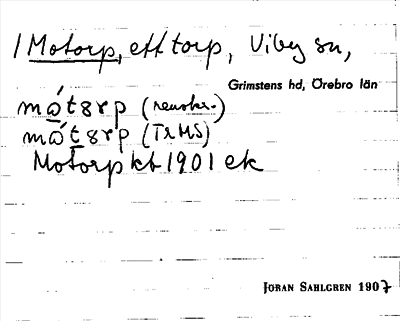 1 Motorp, ett torp, Viby sn,
Grimstens hd, Örebro län
mώ̲tꞷrp (renskr.)
mώ̲t̲ꞷrp (TRMS)
Motorp kb 1901 ek
JÖRAN SAHLGREN 1907